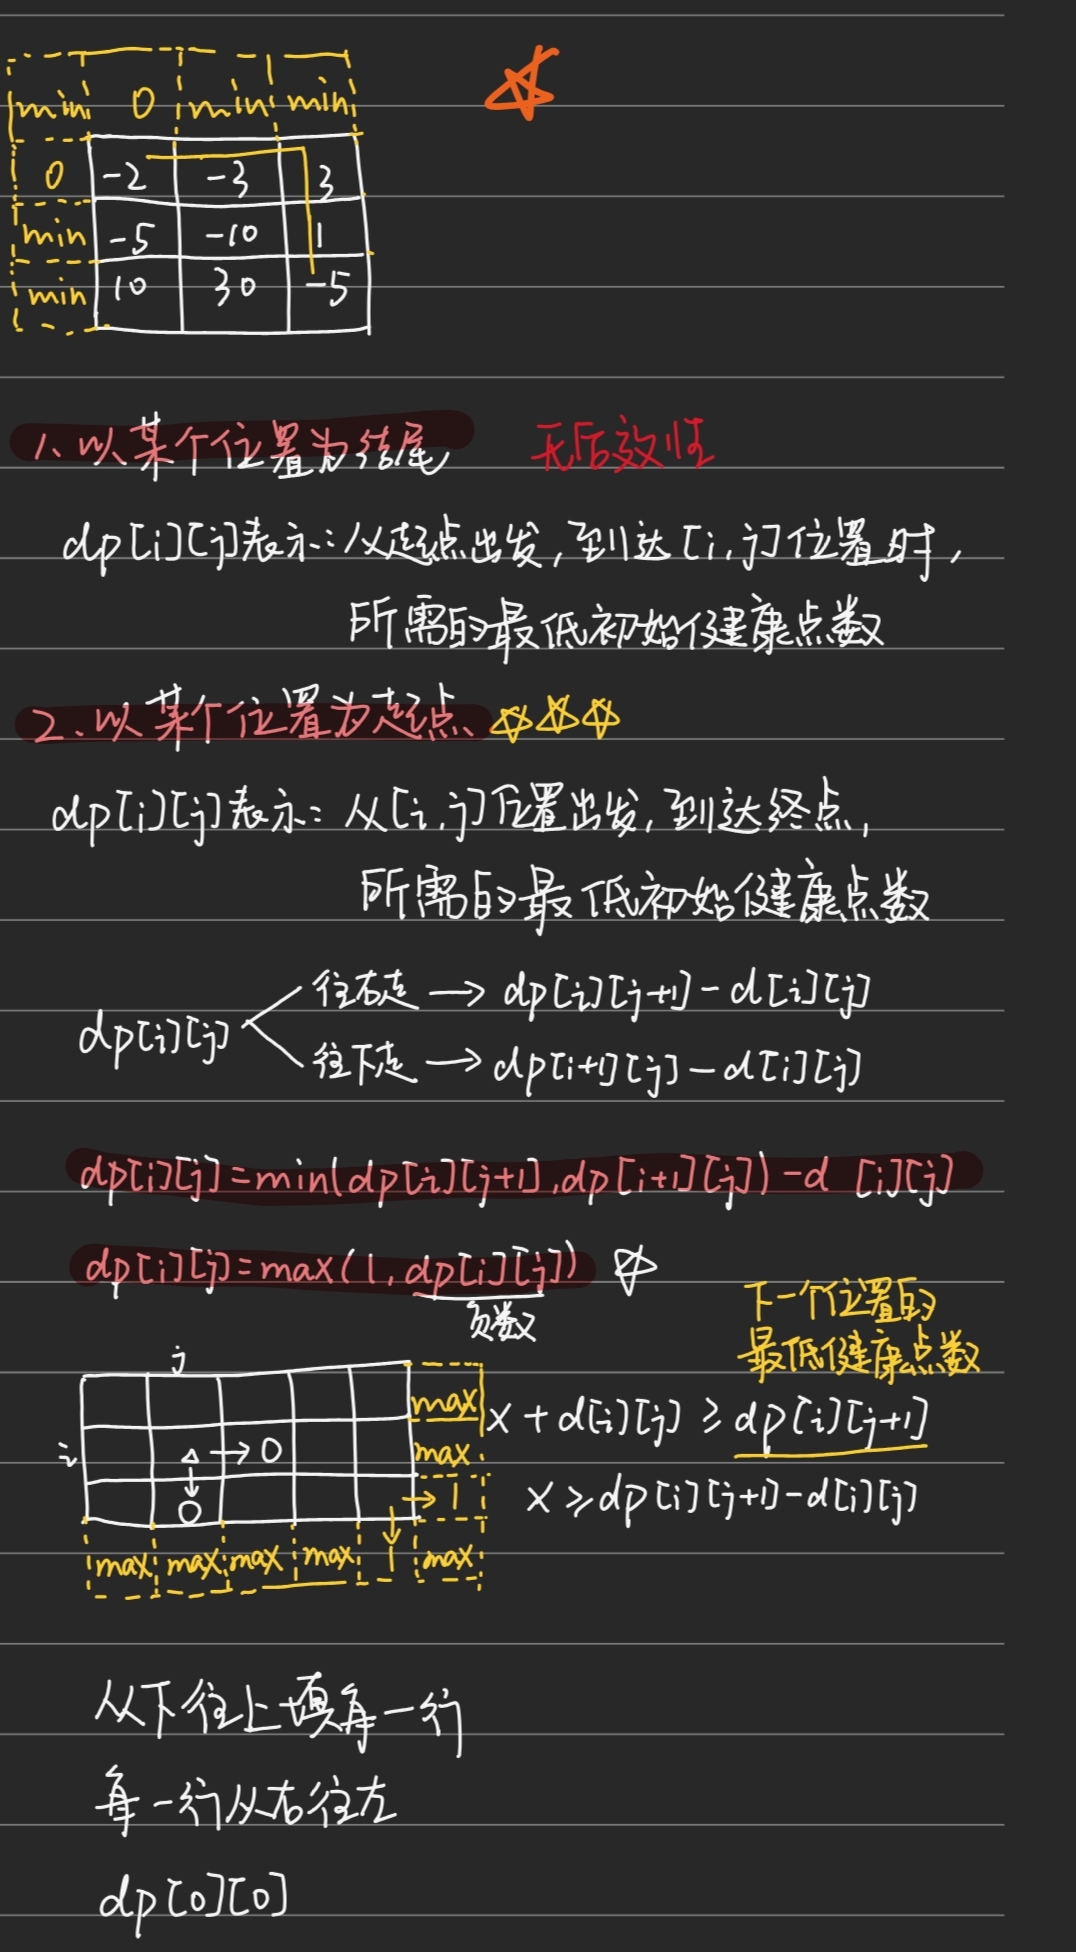 min 0 min min
0 -2 -3 3
min -5 -10 1
min 10 30 -5
1、以某个位置为结尾 无后效性
dp[i][j]表示:从起点出发,到达[i,j]位置时,
所需的最低初始健康点数
2、以某个位置为起点、
dp[i][j]表示:从[i,j]位置出发,到达终点,
所需的最低初始健康点数
往右走 → dp[i][j+1]-d[i][j]
dp[i][j]
往下走 → dp[i+1][j]-d[i][j]
dp[i][j]=min(dp[i][j+1],dp[i+1][j])-d [i][j]
dp[i][j]=max(1,dp[i][j])
负数
下一个位置的
最低健康点数
j
max
x+d[i][j]≥dp[i][j+1]
i → 0 max
0 → 1
x≥dp[i][j+1]-d[i][j]
max max max max 1 max
从下往上填每一行
每一行从右往左
dp[0][0]